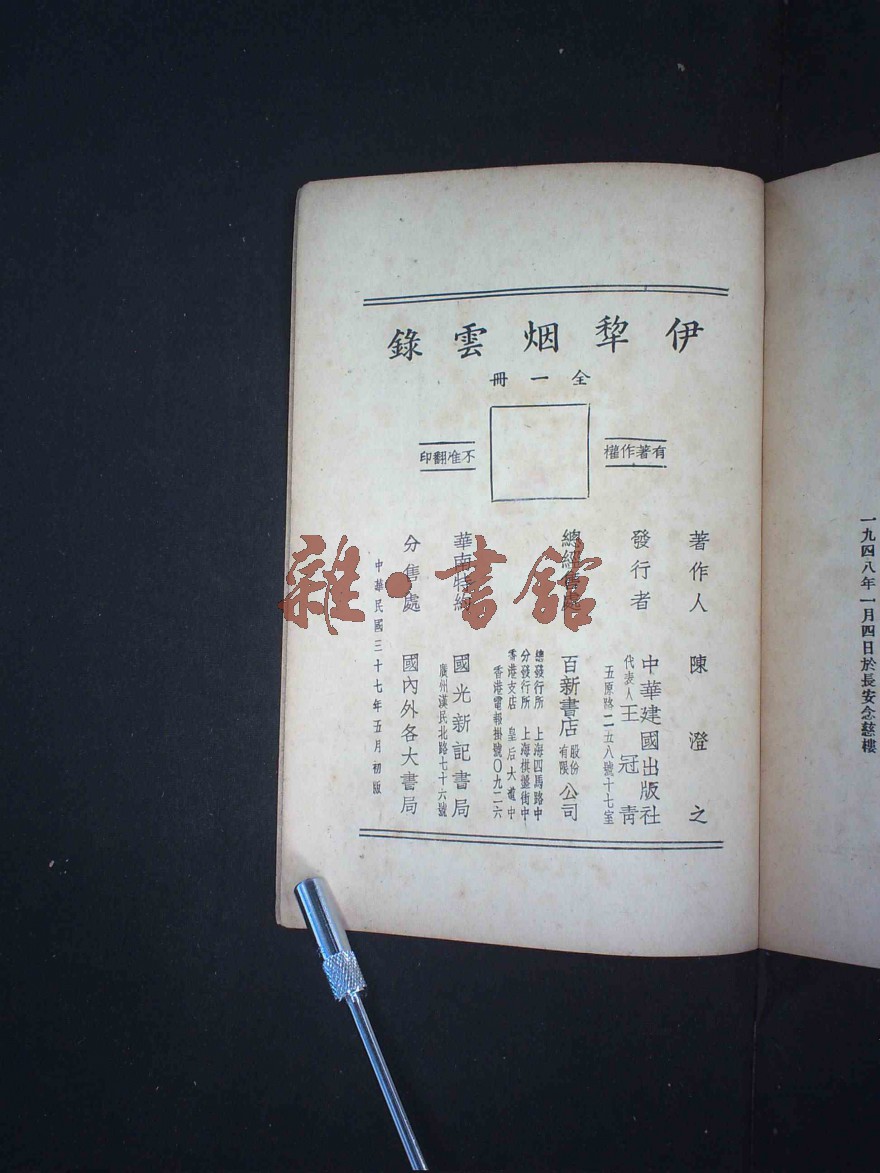 一九四八年一月四日於長安念慈樓
伊犂烟雲錄
全一冊
有著作權
不准翻印
著作人 陳澄之
發行者 中華建國出版社
代表人 王冠青
五原路二五八號十七室
總經售處 百新書店股份有限公司
總發行所 上海四馬路中
分發行所 上海棋盤街中
香港支店 皇后大道中
香港電報掛號〇九二六
華南特約 國光新記書局
廣州漢民北路七十六號
分售處 國內外各大書局
中華民國三十七年五月初版
雜·書館